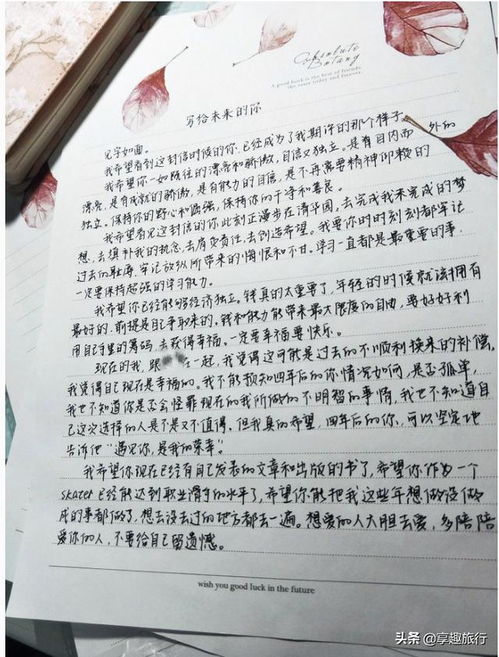 Absolute
Botany
写给未来的你
见字如面。
我希望看到这封信时候的你,已经成为了我期许的那个样子。
我希望你一如既往的漂亮和骄傲,自信又独立。是有目内而外的
漂亮,是有成就的骄傲,是有能力的自信,是不再需要精神仰赖的
独立。保持你的野心和倔强,保持你的干净和善良。
我希望看见这封信的你,此刻正漫步在清华园,去完成我未完成的梦
想,去填补我的执念,去肩负责任,去创造希望。我要你时时刻刻都牢记
过去的耻辱,牢记放纵所带来的悔恨和不甘。学习一直都是最重要的事,
一定要保持超强的学习能力。
我希望你已经能够经济独立。钱真的太重要了,年轻的时候就该拥有
最好的,前提是自己争取来的。钱和能力能带来最大限度的自由,要好好利
用自己手里的筹码,去获得幸福。一定要幸福要快乐。
现在的我,跟 在一起,我觉得这可能是过去的不顺利换来的补偿,
我觉得自己现在是幸福的。我不能预知四年后的你情况如何,是否孤单,
我也不知道你是否会怪罪现在的我所做的不明智的事情,我也不知道自
己这次选择的人是不是又不值得。但我真的希望,四年后的你,可以坚定地
告诉他“遇见你,是我的荣幸”
我希望你现在已经有自己发表的文章和出版的书了,希望你作为一个
skater已经能达到职业滑手的水平了,希望你能把我这些年想做没做
成的事都做了,想去没去过的地方都去一遍。想爱的人大胆去爱,多陪陪
爱你的人,不要给自己留遗憾。
wish you good luck in the future
头条 @享趣旅行